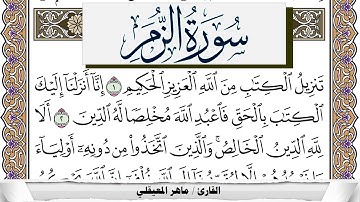 سُورَةُ الزُّمَرِ
تَنزِيلُ ٱلْكِتَٰبِ مِنَ ٱللَّهِ ٱلْعَزِيزِ ٱلْحَكِيمِ ١ إِنَّآ أَنزَلْنَآ إِلَيْكَ
ٱلْكِتَٰبَ بِٱلْحَقِّ فَٱعْبُدِ ٱللَّهَ مُخْلِصًا لَّهُ ٱلدِّينَ ٢ أَلَا
لِلَّهِ ٱلدِّينُ ٱلْخَالِصُ وَٱلَّذِينَ ٱتَّخَذُوا۟ مِن دُونِهِۦٓ أَوْلِيَآءَ
القارئ / ماهر المعيقلي